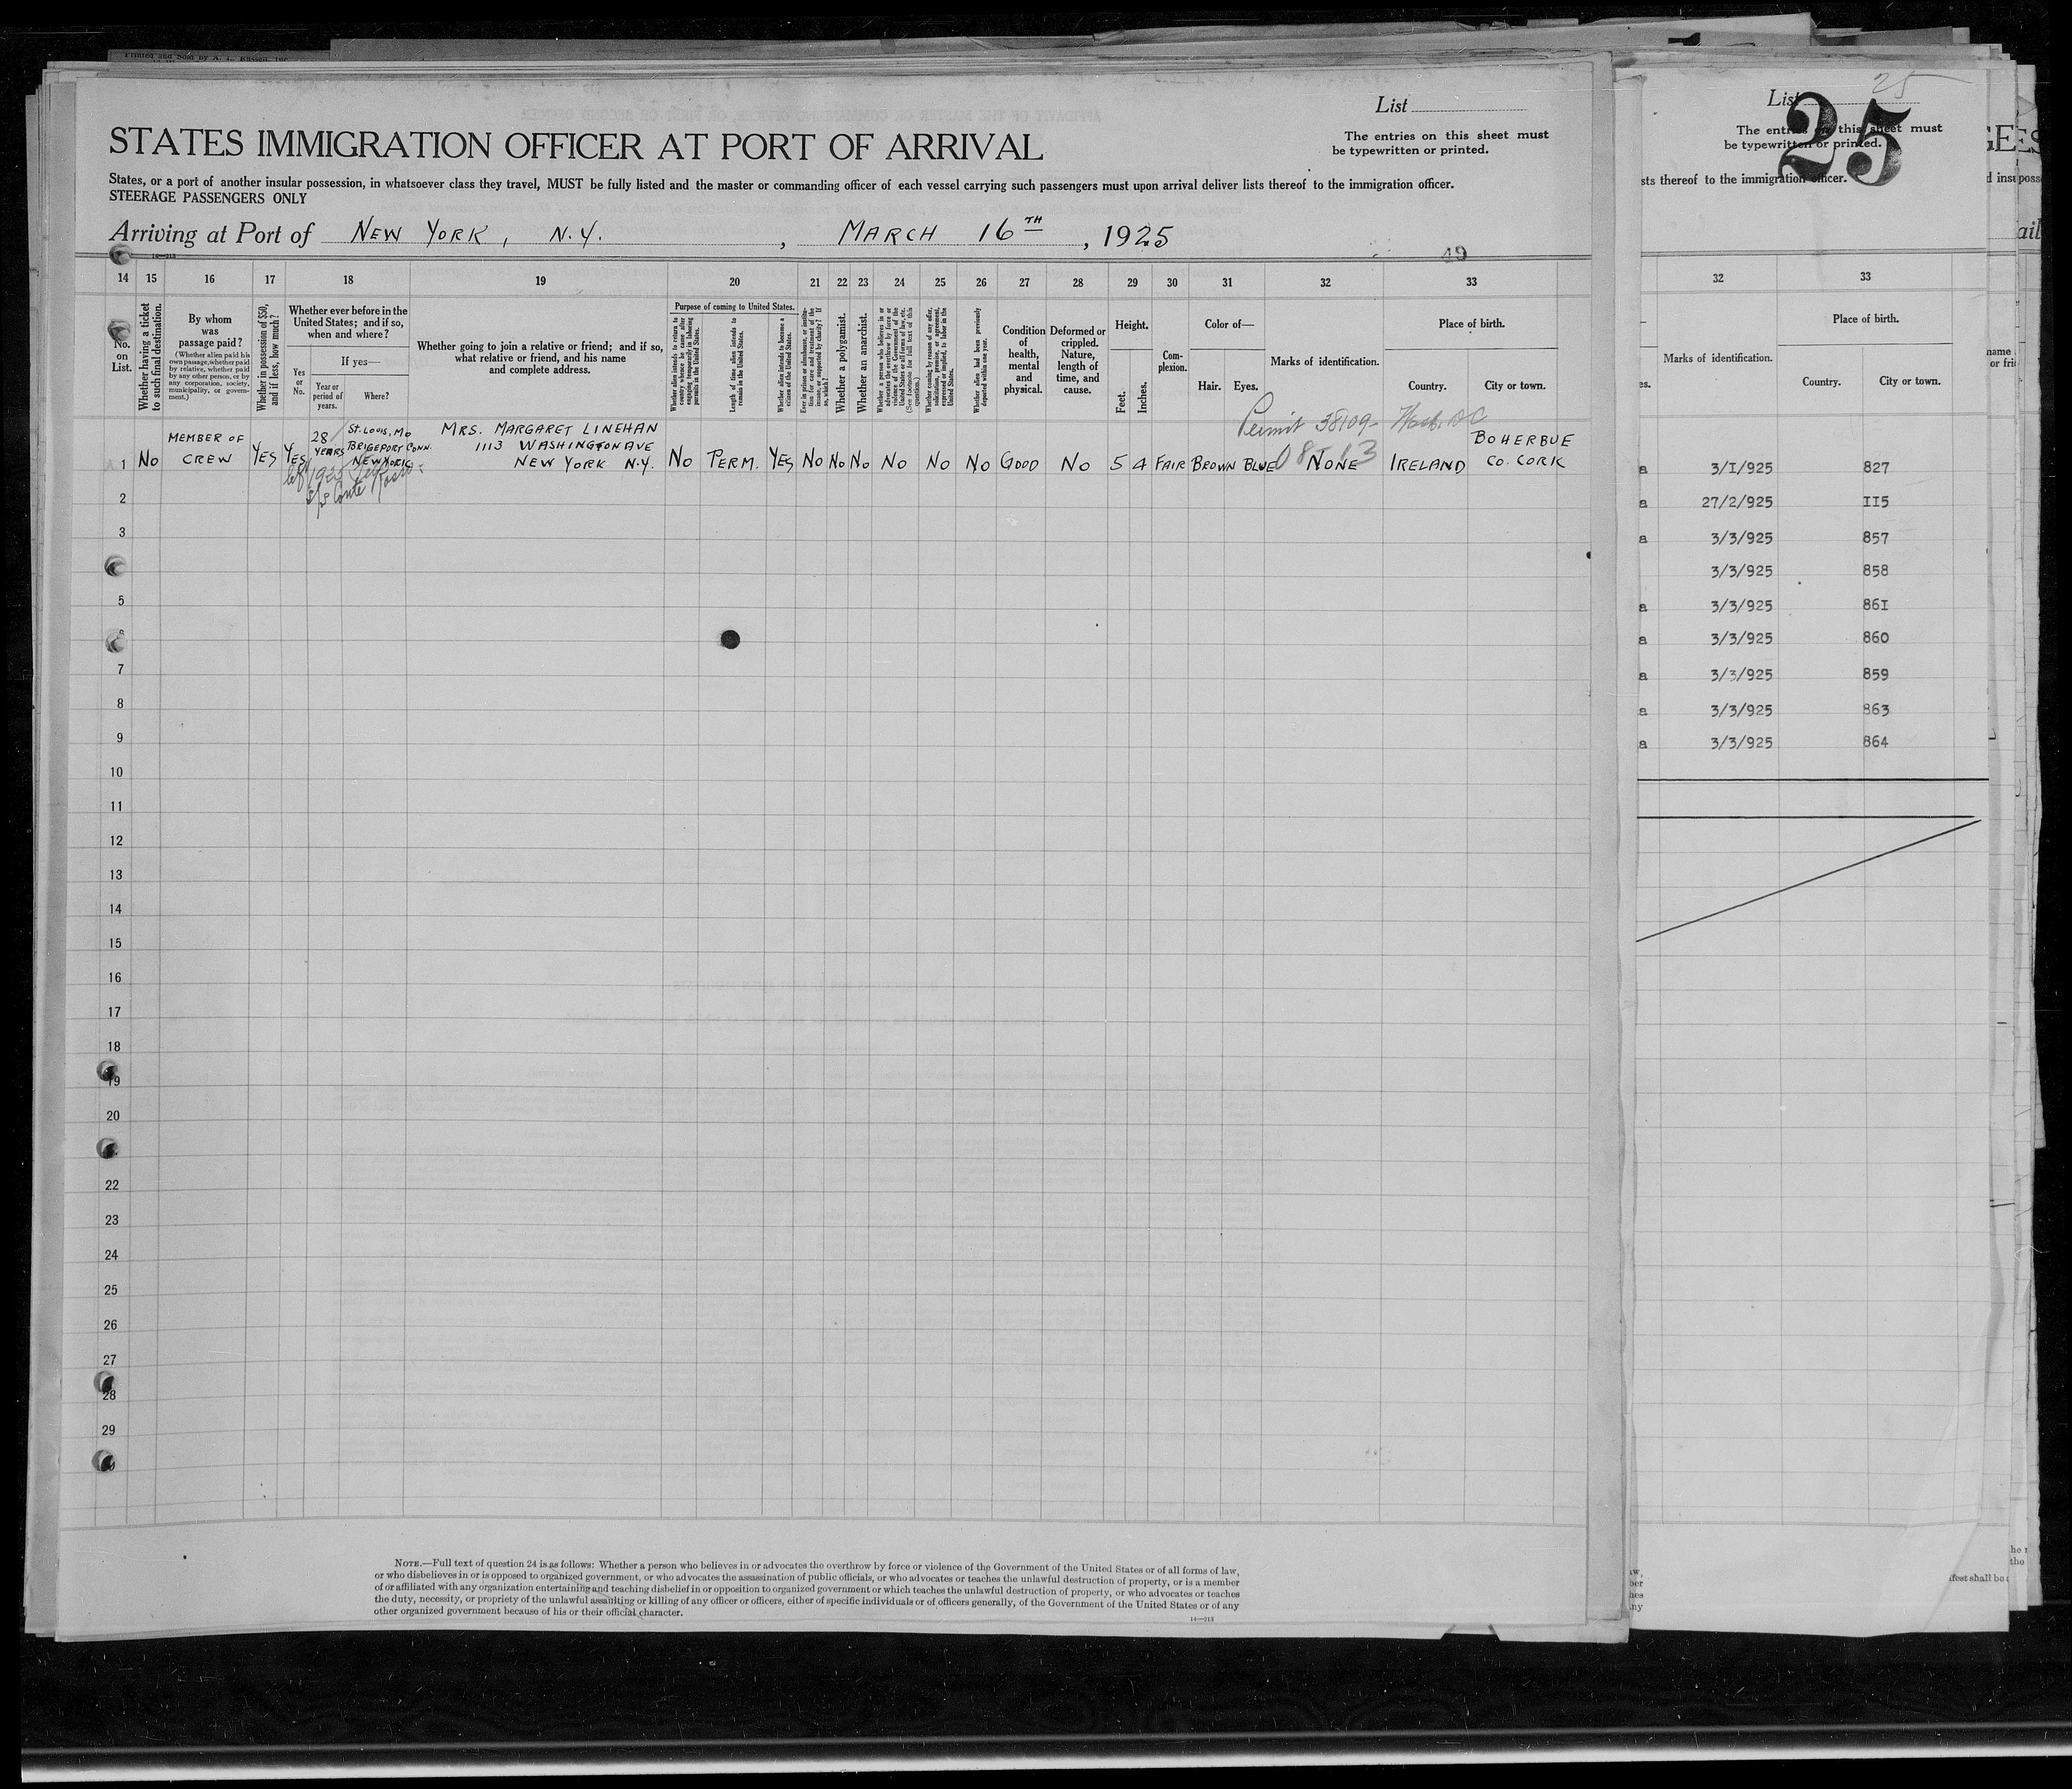 Printed and Sold by A. L. Russell, Inc.
List
STATES IMMIGRATION OFFICER AT PORT OF ARRIVAL
The entries on this sheet must
be typewritten or printed.
States, or a port of another insular possession, in whatsoever class they travel, MUST be fully listed and the master or commanding officer of each vessel carrying such passengers must upon arrival deliver lists thereof to the immigration officer.
STEERAGE PASSENGERS ONLY
Arriving at Port of NEW YORK, N.Y. , MARCH 16TH , 1925
49
14 15 16 17 18 19 20 21 22 23 24 25 26 27 28 29 30 31 32 33
No. on List.
Whether having a ticket to such final destination.
By whom was passage paid?
(Whether alien paid his own passage, whether paid by relative, whether paid by any other person, or by any corporation, society, municipality, or government.)
Whether in possession of $50, and if less, how much?
Whether ever before in the United States; and if so, when and where?
Yes or No.
If yes—
Year or period of years.
Where?
Whether going to join a relative or friend; and if so, what relative or friend, and his name and complete address.
Purpose of coming to United States.
Whether alien intends to return to country whence he came after engaging temporarily in laboring pursuits in the United States.
Length of time alien intends to remain in the United States.
Whether alien intends to become a citizen of the United States.
Ever in prison or almshouse, or institution for care and treatment of the insane, or supported by charity? If so, which?
Whether a polygamist.
Whether an anarchist.
Whether a person who believes in or advocates the overthrow by force or violence of the Government of the United States or all forms of law, etc. (See footnote for full text of this question.)
Whether coming by reason of any offer, solicitation, promise, or agreement, expressed or implied, to labor in the United States.
Whether alien had been previously deported within one year.
Condition of health, mental and physical.
Deformed or crippled. Nature, length of time, and cause.
Height.
Feet. Inches.
Complexion.
Color of—
Hair. Eyes.
Marks of identification.
Place of birth.
Country. City or town.
Permit 38109- Wash. DC
1 NO MEMBER OF CREW YES YES 28 YEARS ST. LOUIS, MO BRIGEPORT CONN. NEW YORK MRS. MARGARET LINEHAN 1113 WASHINGTON AVE NEW YORK N.Y. NO PERM. YES NO NO NO NO NO NO GOOD NO 5 4 FAIR BROWN BLUE NONE IRELAND BOHERBUE CO. CORK
left 1925
s/s Conte Rosso
2
3
5
6
7
8
9
10
11
12
13
14
15
16
17
18
19
20
22
23
24
25
26
27
28
29
NOTE.—Full text of question 24 is as follows: Whether a person who believes in or advocates the overthrow by force or violence of the Government of the United States or of all forms of law,
or who disbelieves in or is opposed to organized government, or who advocates the assassination of public officials, or who advocates or teaches the unlawful destruction of property, or is a member
of or affiliated with any organization entertaining and teaching disbelief in or opposition to organized government or which teaches the unlawful destruction of property, or who advocates or teaches
the duty, necessity, or propriety of the unlawful assaulting or killing of any officer or officers, either of specific individuals or of officers generally, of the Government of the United States or of any
other organized government because of his or their official character.
14—213
List 25
25
The entries on this sheet must
be typewritten or printed.
sts thereof to the immigration officer.
32 33
Marks of identification.
Place of birth.
Country. City or town.
a 3/I/925 827
a 27/2/925 II5
a 3/3/925 857
3/3/925 858
a 3/3/925 86I
a 3/3/925 860
a 3/3/925 859
a 3/3/925 863
a 3/3/925 864
GES
d insu poss
ail
name
or fri
ifest shall be